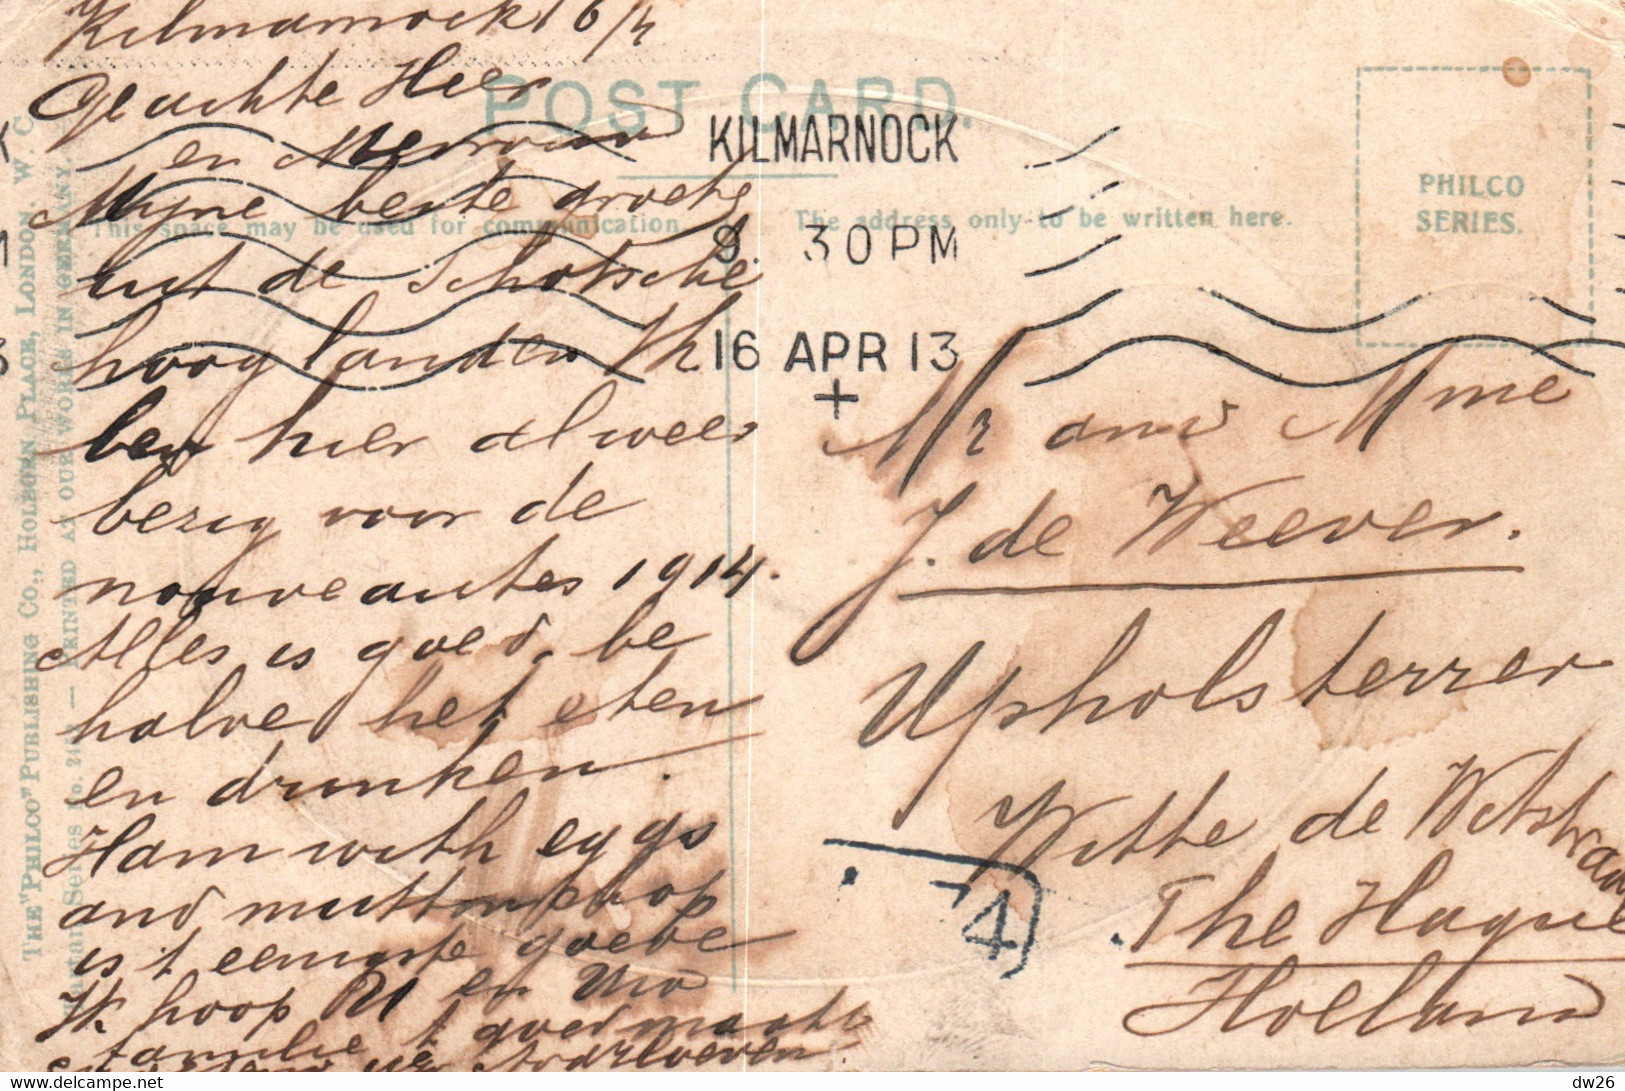 Kilmarnock 16/4
Geachte Heer
en Mevrouw
Myne beste groete
uit de Schotsche
hooglanden Ik
ben hier alweer
bezig voor de
nouveautes 1914.
Alles is goed, be
halve het eten
en drinken.
Ham with eggs
and muttonchop
is 't eenigste goede
Ik hoop U en Uw
familie 't goed maakt
POST CARD.
This space may be used for communication.
The address only to be written here.
PHILCO
SERIES.
KILMARNOCK
9. 30 PM
16 APR 13
+
Mr and Mme
J. de Weever.
Upholsterrer
Witte de Witstraat
The Hague
Holland
4
THE "PHILCO" PUBLISHING CO., HOLBORN PLACE, LONDON. W. C.
PRINTED AT OUR WORKS IN GERMANY.
dw26